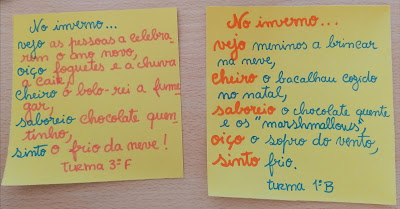 No inverno...
vejo as pessoas a celebra-
rem o ano novo,
oiço foguetes e a chuva
a cair,
cheiro o bolo-rei a fume-
gar,
saboreio chocolate quen-
tinho,
sinto o frio da neve!
Turma 3º F
No inverno...
vejo meninos a brincar
na neve,
cheiro o bacalhau cozido
no natal,
saboreio o chocolate quente
e os "marshmallows",
oiço o sopro do vento,
sinto frio.
turma 1º B